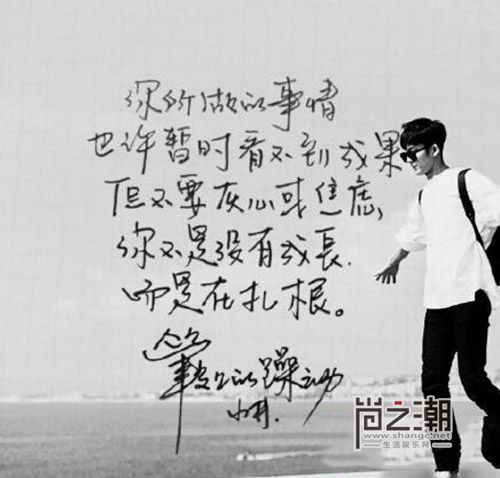 你所做的事情
也许暂时看不到成果
但不要灰心或焦虑,
你不是没有成長.
而是在扎根。
的躁动
尚之潮
www.shangc.net
生活娱乐网